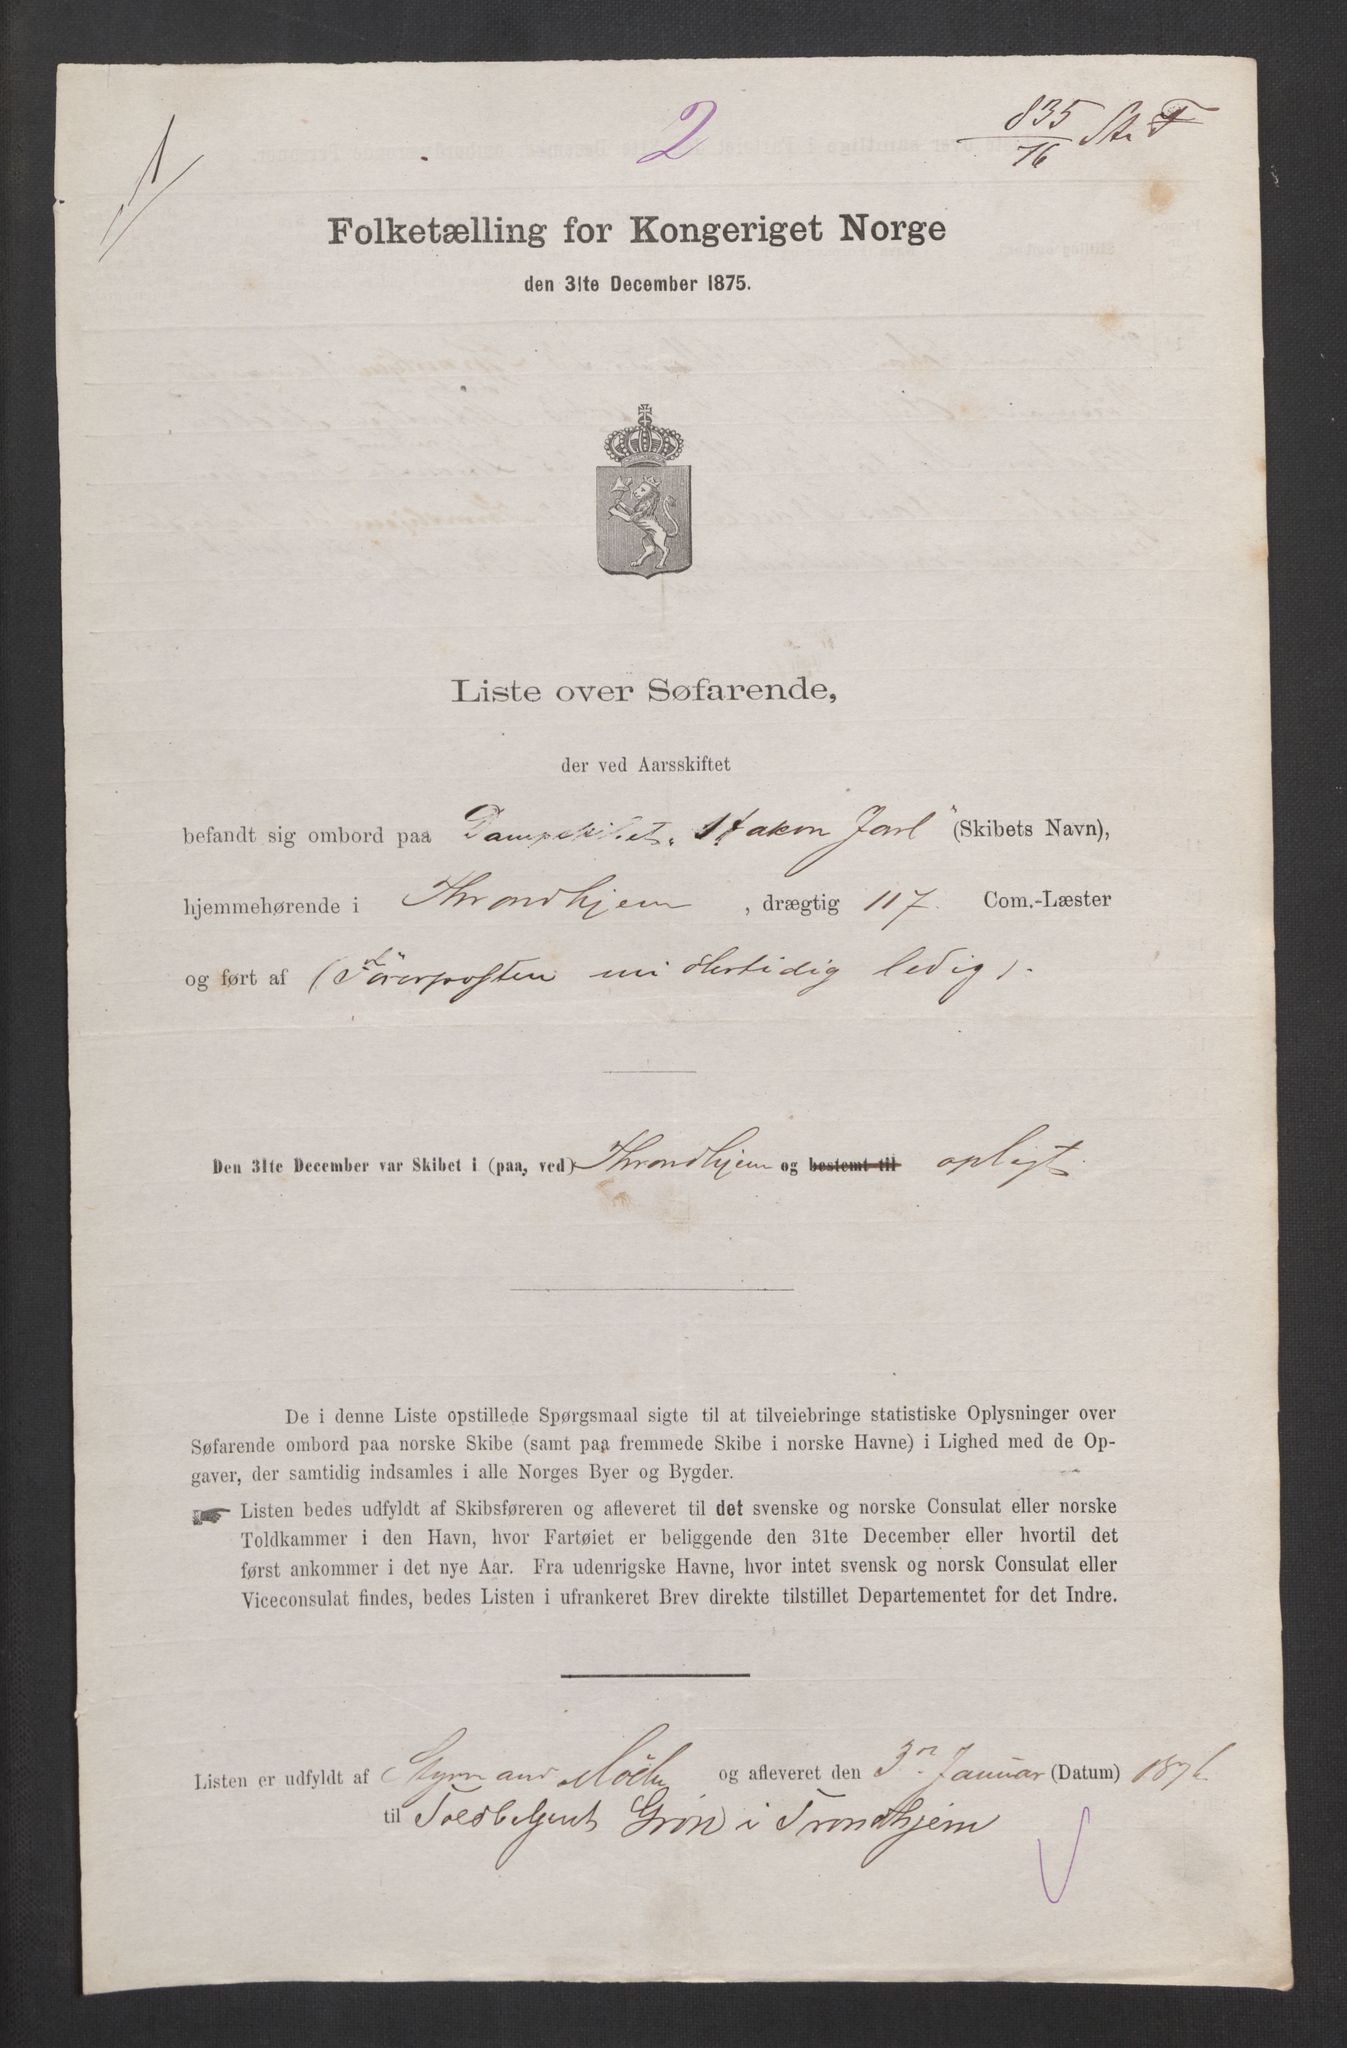 2
835
76
St. F
Folketælling for Kongeriget Norge
den 31te December 1875.
Liste over Søfarende,
der ved Aarsskiftet
befandt sig ombord paa Dampskibet „Hakon Jarl" (Skibets Navn),
hjemmehørende i Throndhjem, drægtig 117 Com.-Læster
og ført af (Førerposten midlertidig ledig).
Den 31te December var Skibet i (paa, ved) Throndhjem og bestemt til oplagt.
De i denne Liste opstillede Spørgsmaal sigte til at tilveiebringe statistiske Oplysninger over
Søfarende ombord paa norske Skibe (samt paa fremmede Skibe i norske Havne) i Lighed med de Op-
gaver, der samtidig indsamles i alle Norges Byer og Bygder.
Listen bedes udfyldt af Skibsføreren og afleveret til det svenske og norske Consulat eller norske
Toldkammer i den Havn, hvor Fartøiet er beliggende den 31te December eller hvortil det
først ankommer i det nye Aar. Fra udenrigske Havne, hvor intet svensk og norsk Consulat eller
Viceconsulat findes, bedes Listen i ufrankeret Brev direkte tilstillet Departementet for det Indre.
Listen er udfyldt af Styrmand og afleveret den 3. Januar (Datum) 1876
til Toldbetjent Grön i Trondhjem